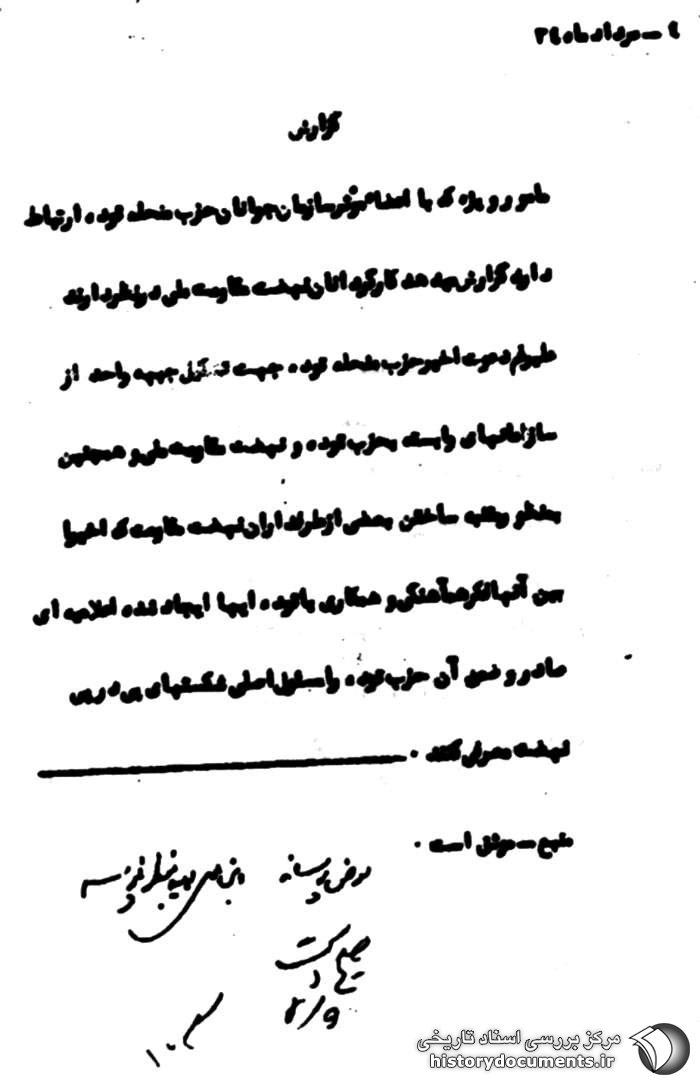 ۹ ــ مرداد ماه ۳۴
گزارش
مامور ویژه که با اعضاء موثر سازمان جوانان حزب منحله توده ارتباط
دارد گزارش میدهد کارگردانان نهضت مقاومت ملی در نظر دارند
علیرغم دعوت اخیر حزب منحله توده جهت تشکیل جبهه واحد از
سازمانهای وابسته بحزب توده و نهضت مقاومت ملی و همچنین
بمنظور متنبه ساختن بعضی از طرفداران نهضت مقاومت که اخیرا
بین آنها فکر هم‌آهنگی و همکاری با توده ایها ایجاد شده اعلامیه ای
صادر و ضمن آن حزب توده را مسئول اصلی شکستهای پی در پی
نهضت معرفی کنند .
منبع ــ موثق است .
بعرض میرساند
۵/۹
مرکز بررسی اسناد تاریخی
historydocuments.ir